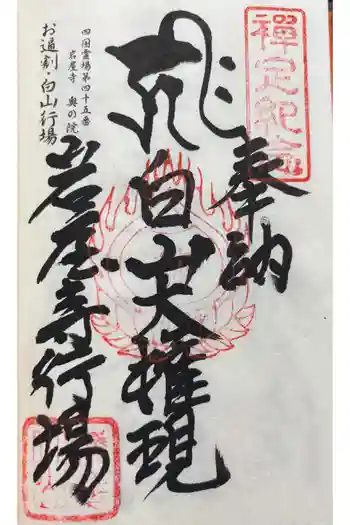 禅定紀念
奉納
白山大権現
四国霊場第四十五番
岩屋寺 奥の院
お逼割・白山行場
岩屋寺行場